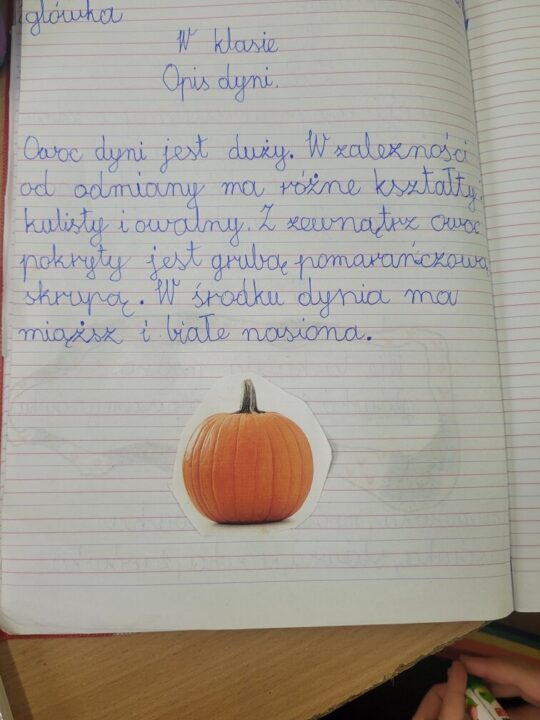 główka
W klasie
Opis dyni.
Owoc dyni jest duży. W zależności
od odmiany ma różne kształty:
kulisty i owalny. Z zewnątrz owoc
pokryty jest grubą pomarańczową
skrupą. W środku dynia ma
miąższ i białe nasiona.